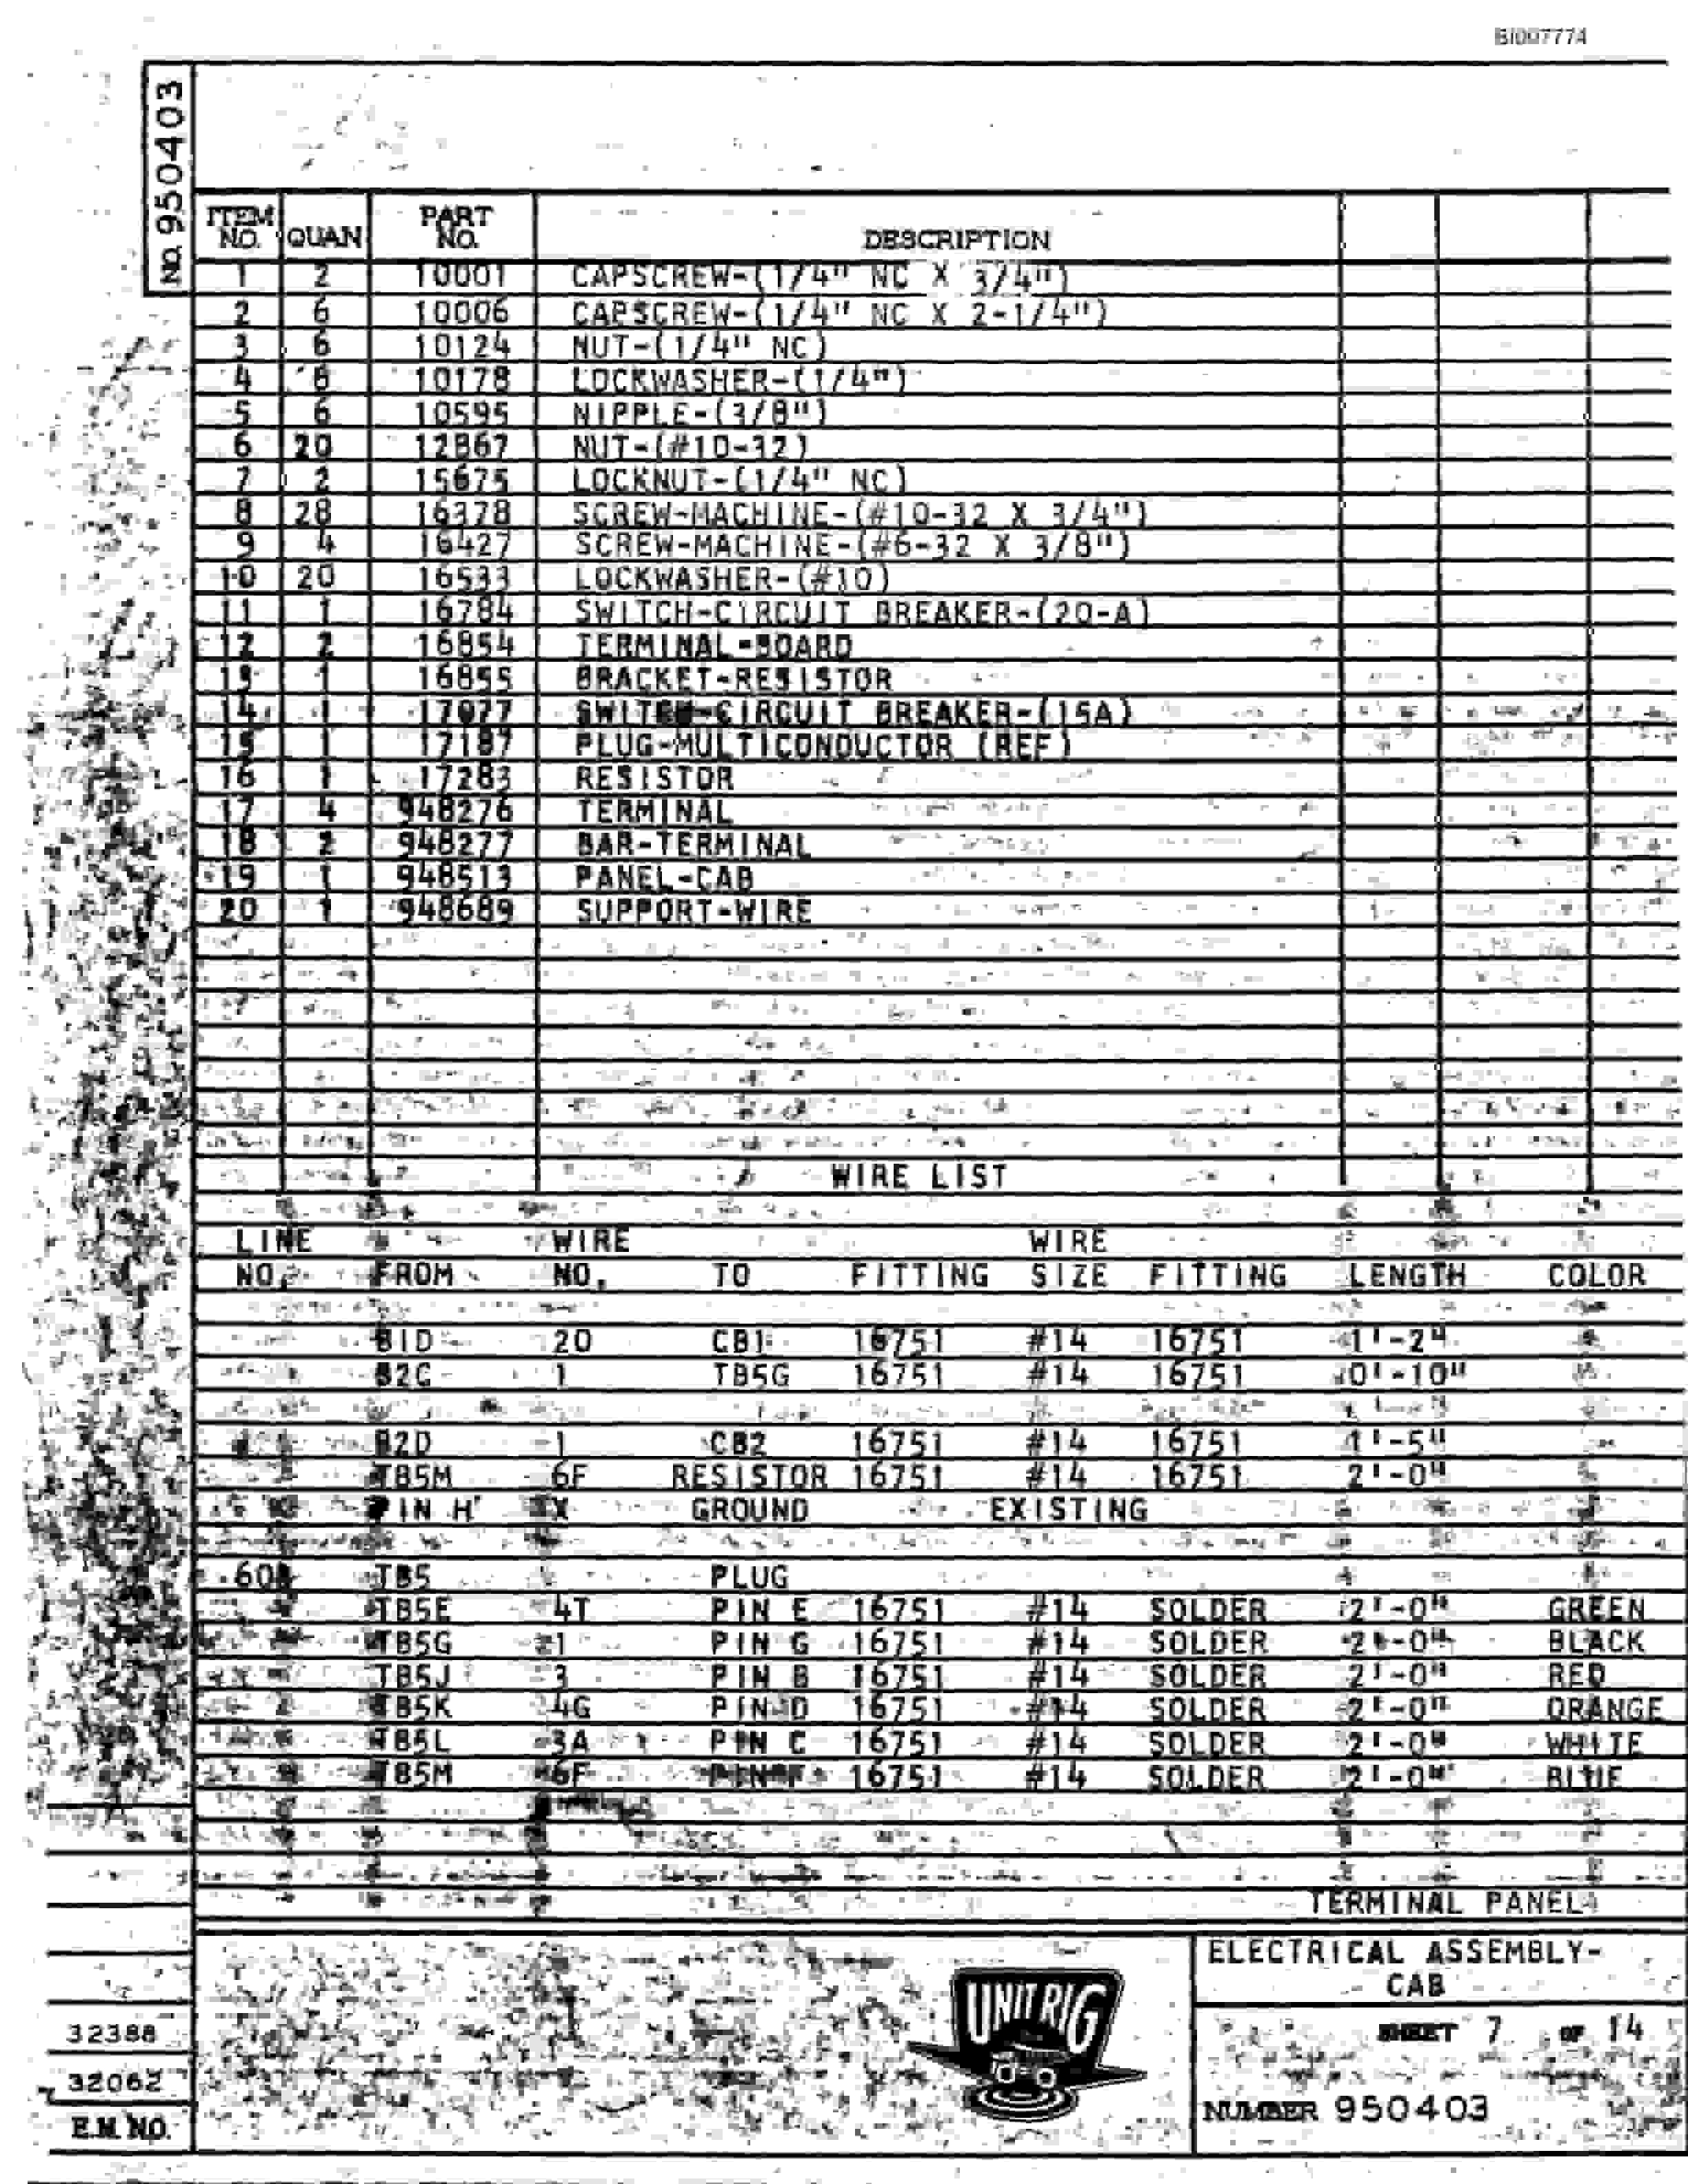 BI007774
NO. 950403
ITEM NO. QUAN PART NO. DESCRIPTION
1 2 10001 CAPSCREW-(1/4" NC X 3/4")
2 6 10006 CAPSCREW-(1/4" NC X 2-1/4")
3 6 10124 NUT-(1/4" NC)
4 10178 LOCKWASHER-(1/4")
5 6 10595 NIPPLE-(3/8")
6 20 12867 NUT-(#10-32)
7 2 15675 LOCKNUT-(1/4" NC)
8 28 16378 SCREW-MACHINE-(#10-32 X 3/4")
9 4 16427 SCREW-MACHINE-(#6-32 X 3/8")
10 20 16533 LOCKWASHER-(#10)
11 1 16784 SWITCH-CIRCUIT BREAKER-(20-A)
12 2 16854 TERMINAL-BOARD
13 1 16855 BRACKET-RESISTOR
14 1 17077 SWITCH-CIRCUIT BREAKER-(15A)
15 1 17187 PLUG-MULTICONDUCTOR (REF)
16 1 17283 RESISTOR
17 4 948276 TERMINAL
18 2 948277 BAR-TERMINAL
19 1 948513 PANEL-CAB
20 1 948689 SUPPORT-WIRE
WIRE LIST
LINE WIRE WIRE
NO. FROM NO. TO FITTING SIZE FITTING LENGTH COLOR
B1D 20 CB1 16751 #14 16751 1'-2"
B2C 1 TB5G 16751 #14 16751 0'-10"
B2D 1 CB2 16751 #14 16751 1'-5"
TB5M 6F RESISTOR 16751 #14 16751 2'-0"
PIN H X GROUND EXISTING
TB5 PLUG
TB5E 4T PIN E 16751 #14 SOLDER 2'-0" GREEN
TB5G 1 PIN G 16751 #14 SOLDER 2'-0" BLACK
TB5J 3 PIN B 16751 #14 SOLDER 2'-0" RED
TB5K 4G PIN D 16751 #14 SOLDER 2'-0" ORANGE
TB5L 3A PIN C 16751 #14 SOLDER 2'-0" WHITE
TB5M 6F PIN F 16751 #14 SOLDER 2'-0" BLUE
TERMINAL PANEL
ELECTRICAL ASSEMBLY-
CAB
UNIT RIG
SHEET 7 OF 14
32388
32062
NUMBER 950403
E.M. NO.